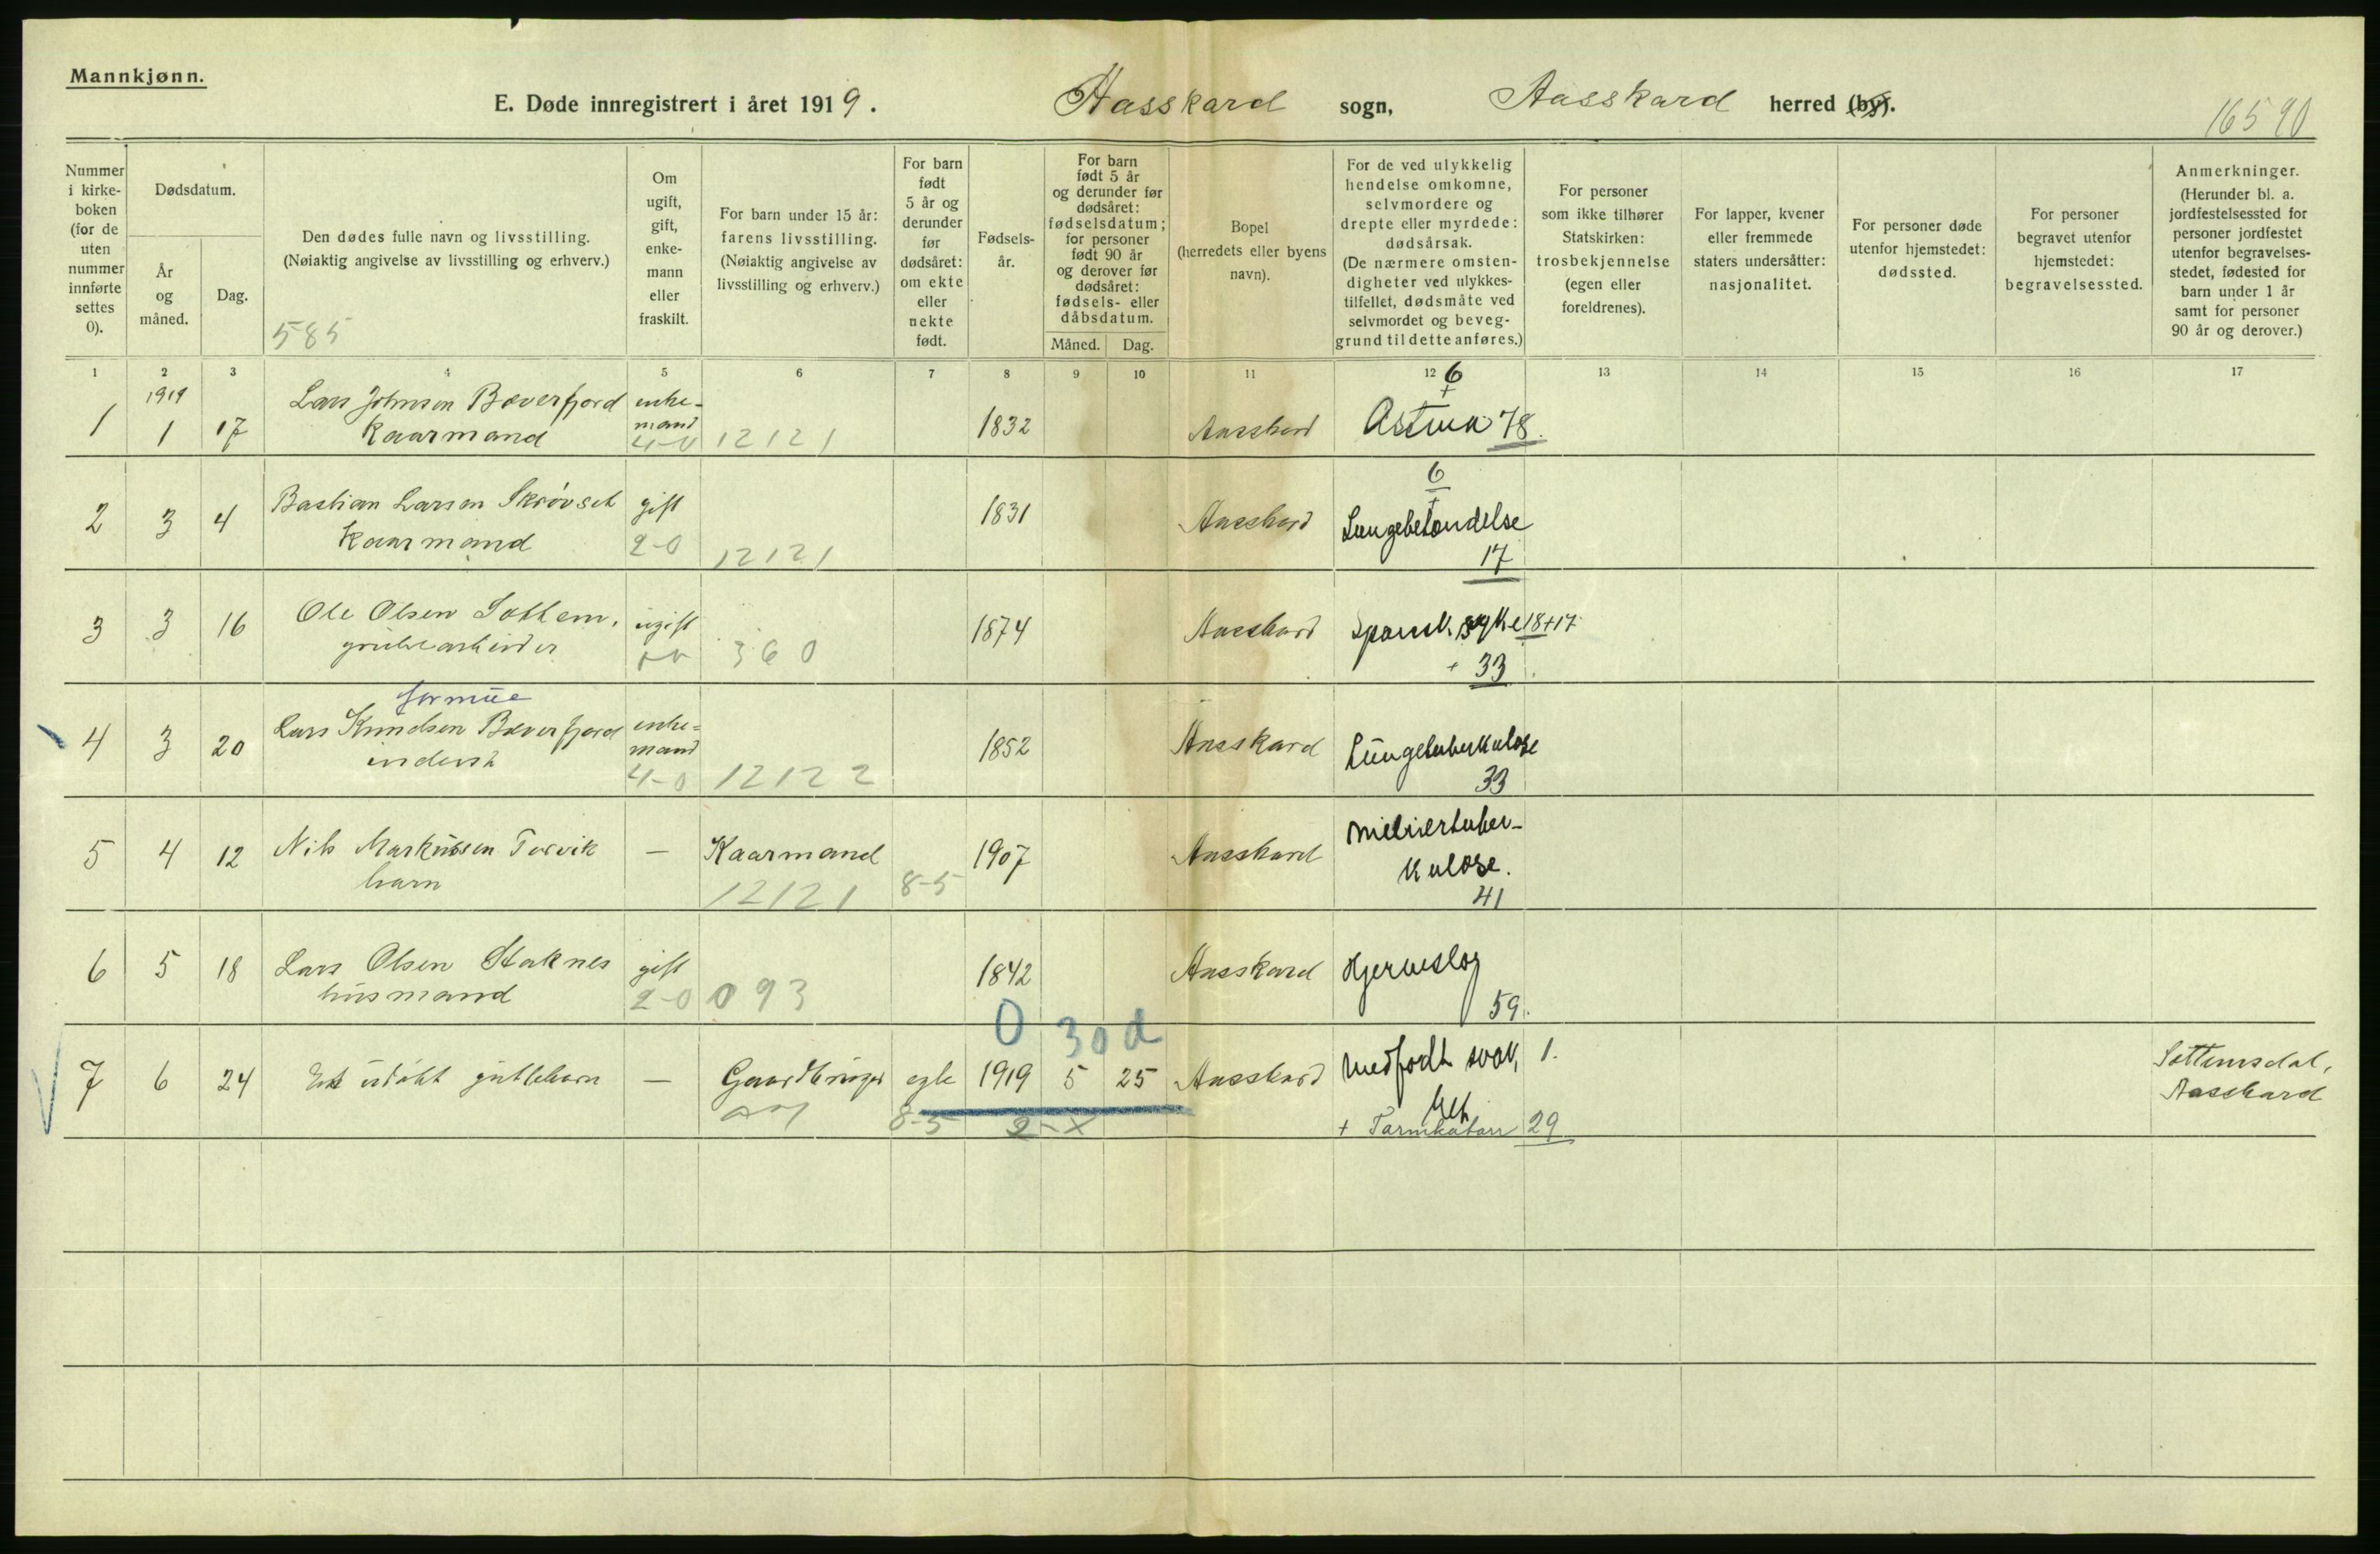 Mannkjønn.
E. Døde innregistrert i året 1919. Aasskard sogn, Aasskard herred (by).
16590
Nummer i kirke-boken (for de uten nummer innførte settes 0).
Dødsdatum.
År og måned.
Dag.
Den dødes fulle navn og livsstilling.
(Nøiaktig angivelse av livsstilling og erhverv.)
585
Om ugift, gift, enke-mann eller fraskilt.
For barn under 15 år: farens livsstilling. (Nøiaktig angivelse av livsstilling og erhverv.)
For barn født 5 år og derunder før dødsåret: om ekte eller uekte født.
Fødsels-år.
For barn født 5 år og derunder før dødsåret: fødselsdatum; for personer født 90 år og derover før dødsåret: fødsels- eller dåbsdatum.
Måned. Dag.
Bopel (herredets eller byens navn).
For de ved ulykkelig hendelse omkomne, selvmordere og drepte eller myrdede: dødsårsak. (De nærmere omsten-digheter ved ulykkes-tilfellet, dødsmåte ved selvmordet og beveg-grund til dette anføres.)
For personer som ikke tilhører Statskirken: trosbekjennelse (egen eller foreldrenes).
For lapper, kvener eller fremmede staters undersåtter: nasjonalitet.
For personer døde utenfor hjemstedet: dødssted.
For personer begravet utenfor hjemstedet: begravelsessted.
Anmerkninger. (Herunder bl. a. jordfestelsessted for personer jordfestet utenfor begravelses-stedet, fødested for barn under 1 år samt for personer 90 år og derover.)
1 2 3 4 5 6 7 8 9 10 11 12 13 14 15 16 17
1919 Lars Johnsen Bæverfjord enke- 6 +
1 1 17 Kaarmand mand 4-0 12121 1832 Aasskard Astma 78.
6 +
2 3 4 Bastian Larsen Skrøvset gift 1831 Aasskard Lungebetændelse
Kaarmand 2-0 12121 17
3 3 16 Ole Olsen Sottem, ugift 1874 Aasskard Spansk. syke 18+17
grubearbeider 360 + 33
formue
4 3 20 Lars Knudsen Bæverfjord enke= 1852 Aasskard Lungetuberkulose
inderst mand 4-0 12122 33
5 4 12 Nils Markussen Torvik — Kaarmand 1907 Aasskard Miliærtuber-
barn 12121 8-5 kulose.
41
6 5 18 Lars Olsen Staknes gift 1842 Aasskard Hjerneslag
husmand 2-0 093 59.
0 30 d
7 6 24 Et udøbt guttebarn — Gaardbruger egte 1919 5 25 Aasskard Medfødt svak, 1. Sottemsdal,
8-5 2-X het Aasskard
+ Tarmkatarr 29